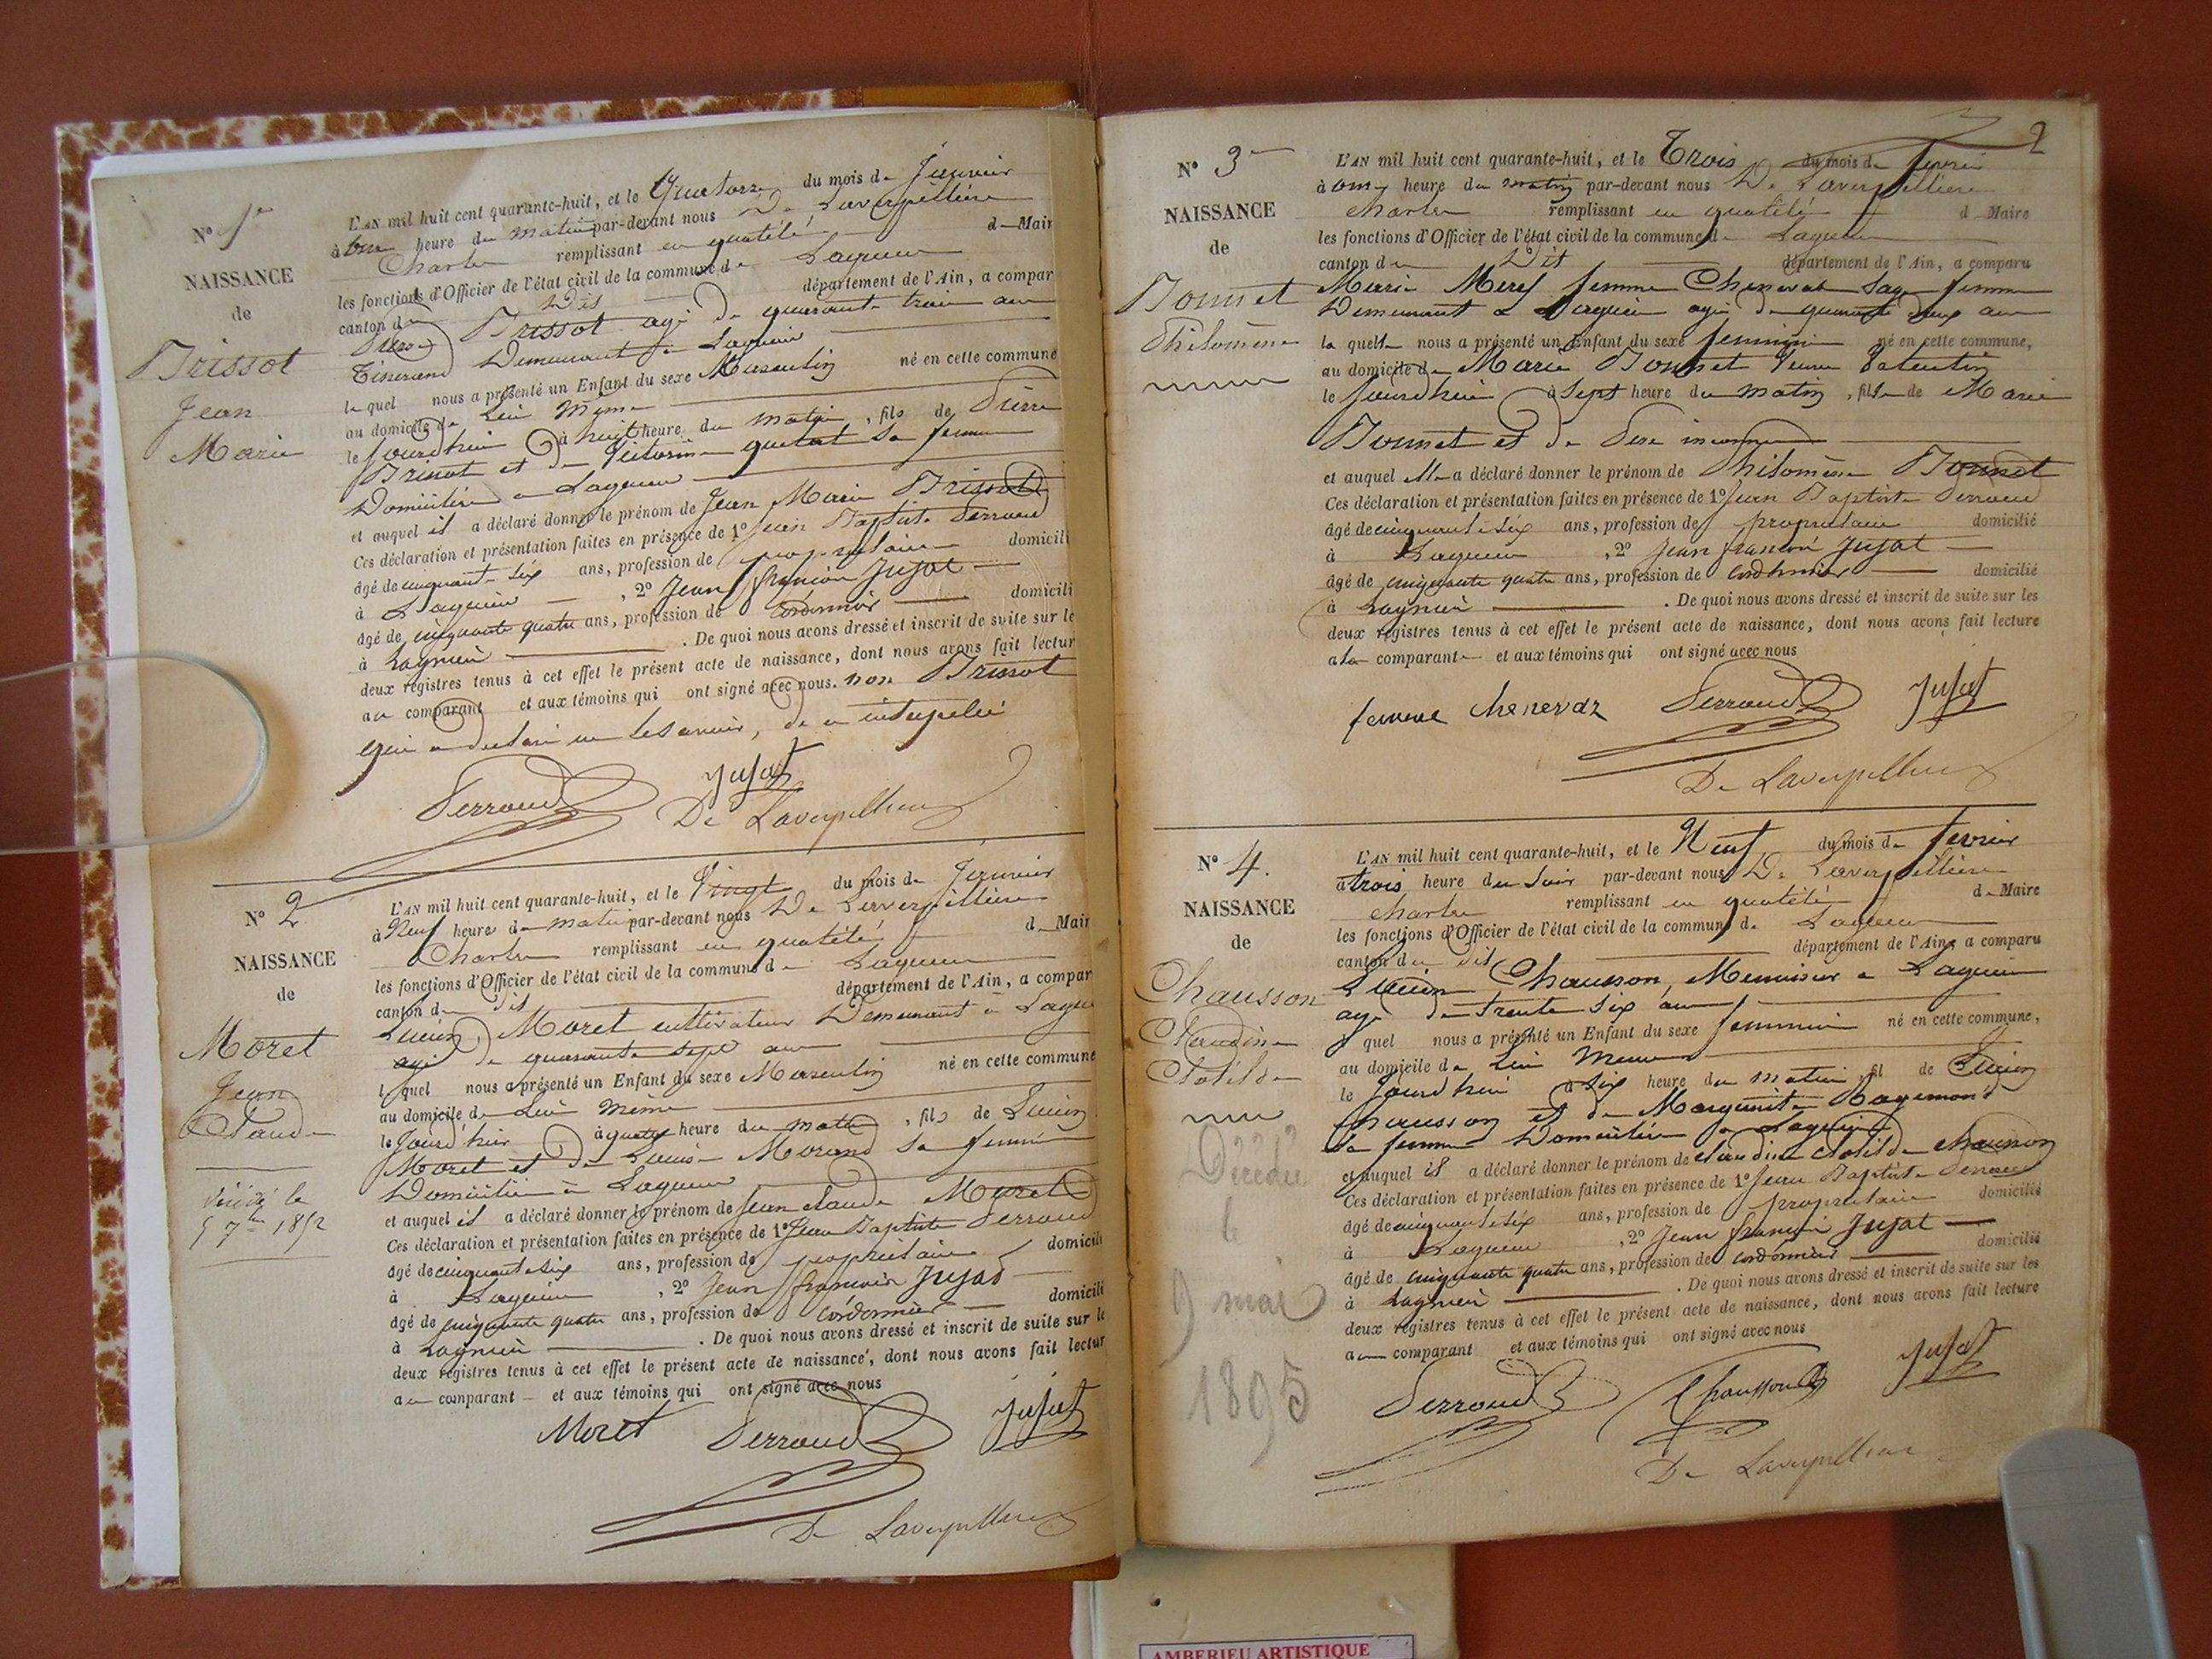 N° 1er
NAISSANCE
de
Brissot
Jean
Marie
L'AN mil huit cent quarante-huit, et le Quatorze du mois de Janvier
à onze heure du matin par-devant nous De Laverpillière
Charles remplissant en qualité d Maire
les fonctions d'Officier de l'état civil de la commune de Lagnieu
canton de Dit département de l'Ain, a compar
Pierre Brissot agé de quarante trois ans
Tisserand Demeurant à Lagnieu
lequel nous a présenté un Enfant du sexe Masculin né en cette commune
au domicile de Lui même
le jourd'hui à huit heure du matin, fils de Pierre
Brissot et de Victorine quetat sa femme
Domiciliés à Lagnieu
et auquel il a déclaré donner le prénom de Jean Marie Brissot
Ces déclaration et présentation faites en présence de 1° Jean Baptiste Perroud
âgé de cinquante six ans, profession de propriétaire domicili
à Lagnieu, 2° Jean françois Jujat
âgé de cinquante quatre ans, profession de Cordonnier domicili
à Lagnieu. De quoi nous avons dressé et inscrit de suite sur le
deux registres tenus à cet effet le présent acte de naissance, dont nous avons fait lectur
au comparant et aux témoins qui ont signé avec nous. non Brissot
qui a déclaré ne le savoir, de ce interpellé
Perroud Jujat
De Laverpillière
N° 2
NAISSANCE
de
Moret
Jean
Claude
décédé le
5 7bre 1852
L'AN mil huit cent quarante-huit, et le Vingt du mois de Janvier
à Neuf heure du matin par-devant nous De Laverpillière
Charles remplissant en qualité d Mair
les fonctions d'Officier de l'état civil de la commune de Lagnieu
canton de dit département de l'Ain, a compar
Lucien Moret cultivateur Demeurant à Lagni
agé de quarante sept ans
lequel nous a présenté un Enfant du sexe Masculin né en cette commune
au domicile de Lui même
le jourd'hui à quatre heure du matin, fils de Lucien
Moret et de Louise Morand sa femme
Domiciliés à Lagnieu
et auquel il a déclaré donner le prénom de Jean claude Moret
Ces déclaration et présentation faites en présence de 1° Jean Baptiste Perroud
âgé de cinquante six ans, profession de propriétaire domicili
à Lagnieu, 2° Jean françois Jujat
âgé de cinquante quatre ans, profession de Cordonnier domicili
à Lagnieu. De quoi nous avons dressé et inscrit de suite sur le
deux registres tenus à cet effet le présent acte de naissance, dont nous avons fait lectur
au comparant et aux témoins qui ont signé avec nous
Moret Perroud Jujat
De Laverpillière
2
N° 3
NAISSANCE
de
Bonnet
Philomène
L'AN mil huit cent quarante-huit, et le Trois du mois de fevrier
à onze heure du matin par-devant nous De Laverpillière
Charles remplissant en qualité d Maire
les fonctions d'Officier de l'état civil de la commune de Lagnieu
canton de Dit département de l'Ain, a comparu
Marie Merey femme Chenevat Sage femme
Demeurant à Lagnieu agée de quarante deux ans
laquelle nous a présenté un Enfant du sexe feminin né en cette commune,
au domicile de Marie Bonnet Veuve
le jourd'hui à sept heure du matin, fille de Marie
Bonnet et de Père inconnu
et auquel elle a déclaré donner le prénom de Philomène Bonnet
Ces déclaration et présentation faites en présence de 1° Jean Baptiste Perroud
âgé de cinquante six ans, profession de propriétaire domicilié
à Lagnieu, 2° Jean françois Jujat
âgé de cinquante quatre ans, profession de Cordonnier domicilié
à Lagnieu. De quoi nous avons dressé et inscrit de suite sur les
deux registres tenus à cet effet le présent acte de naissance, dont nous avons fait lecture
a la comparante et aux témoins qui ont signé avec nous
femme chenevaz Perroud Jujat
De Laverpillière
N° 4.
NAISSANCE
de
Chausson
Claudine
Clotilde
Décédée
le
9 mai
1895
L'AN mil huit cent quarante-huit, et le Neuf du mois de fevrier
à trois heure du soir par-devant nous De Laverpillière
Charles remplissant en qualité d Maire
les fonctions d'Officier de l'état civil de la commune de Lagnieu
canton de dit département de l'Ain, a comparu
Lucien Chausson, Menuisier à Lagnieu
agé de trente six ans
lequel nous a présenté un Enfant du sexe feminin né en cette commune,
au domicile de Lui même
le jourd'hui à six heure du matin, fil de Lucien
Chausson et de Marguerite Ragemond
sa femme Domiciliés à Lagnieu
et auquel il a déclaré donner le prénom de claudine clotilde chausson
Ces déclaration et présentation faites en présence de 1° Jean Baptiste Perroud
âgé de cinquante six ans, profession de propriétaire domicilié
à Lagnieu, 2° Jean françois Jujat
âgé de cinquante quatre ans, profession de Cordonnier domicilié
à Lagnieu. De quoi nous avons dressé et inscrit de suite sur les
deux registres tenus à cet effet le présent acte de naissance, dont nous avons fait lecture
au comparant et aux témoins qui ont signé avec nous
Perroud Chausson Jujat
De Laverpillière
AMBERIEU ARTISTIQUE